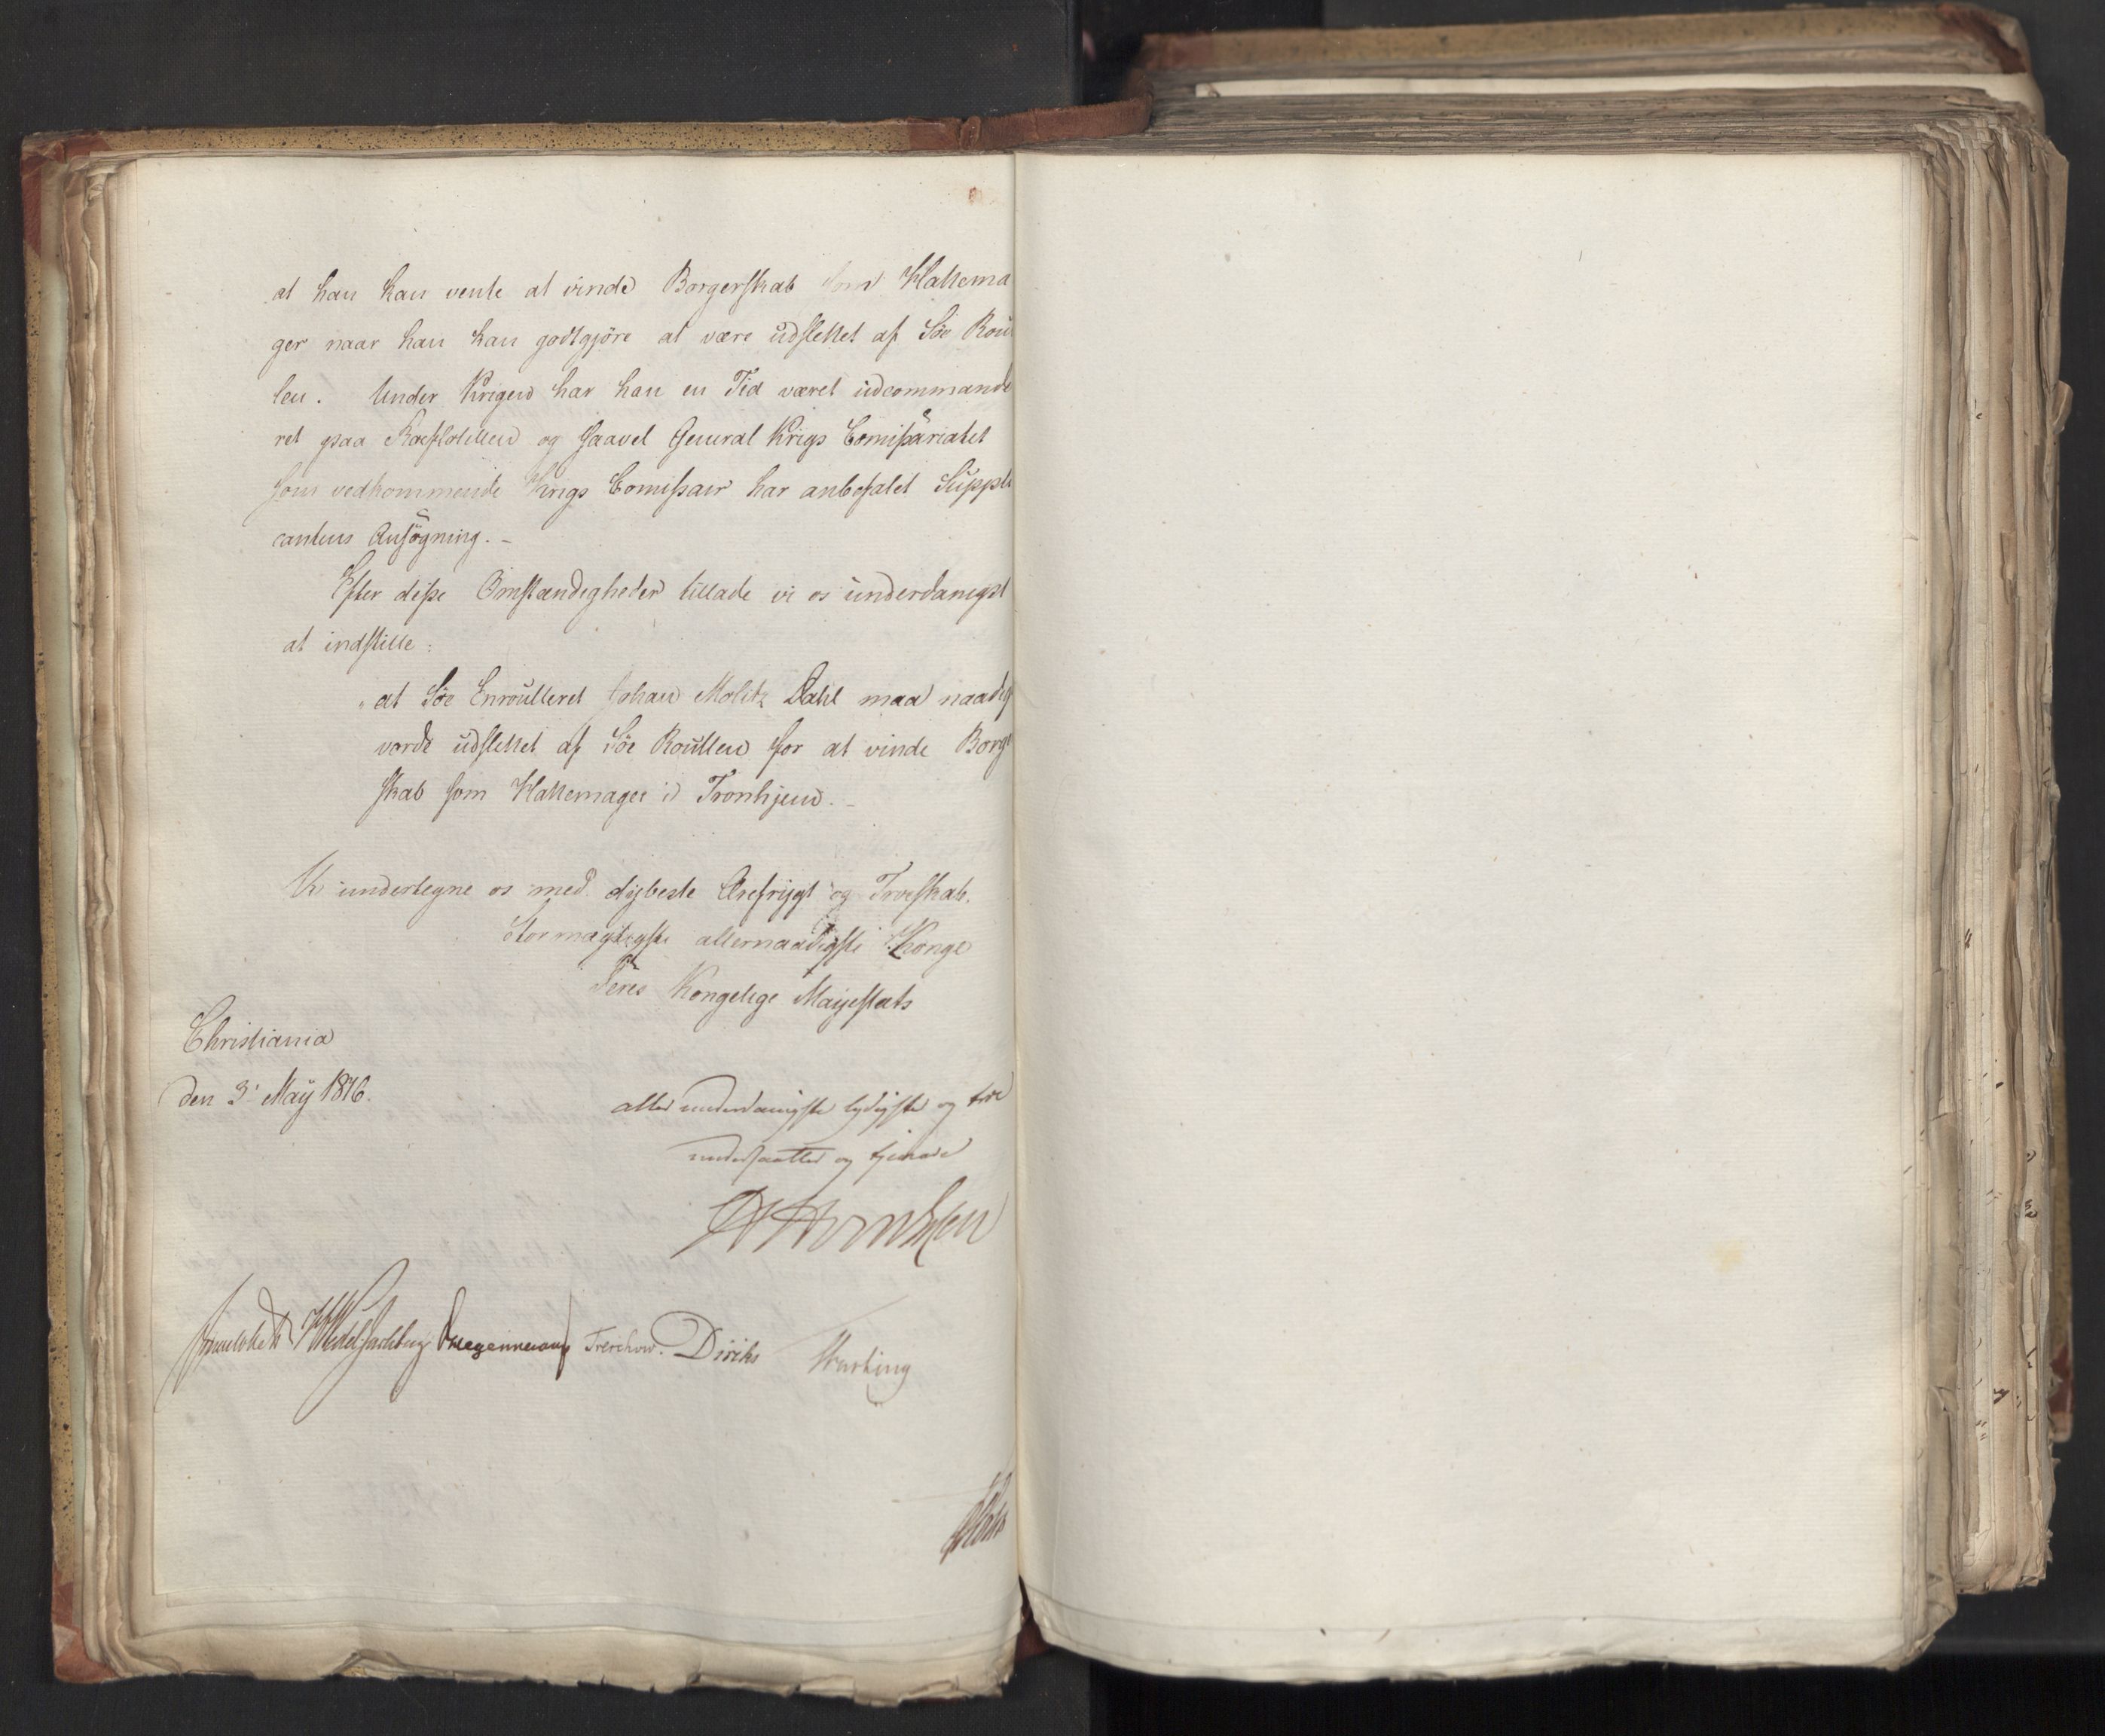 at han kan vente at vinde Borgerskab som Hattema
ger naar han kan godtgjöre at være udslettet af Söe Rou
len. Under Krigen har han en Tid været udcommande
ret paa Roeflotillen og saavel General Krigs Comissariatet
som vedkommende Krigs Comissair har anbefalet Suppli
cantens Ansögning. -
Efter disse Omstændigheder tillade vi os underdanigst
at indstille:
"at Söe Enroulleret Johan Moltz Dahl maa naadigst
vorde udslettet af Söe Roullen for at vinde Borger
skab som Hattemager i Tronhjem. -
Vi undertegne os med dybeste Ærefrygt og Troeskab.
Stormægtigste allernaadigste Konge
Deres Kongelige Mayestæts
Christiania
den 3' May 1816.
allerunderdanigste lydigste og troe
undersaatter og tjenere
Sommerhielm Wedel Jarlsberg Hegermann Treschow. Diriks